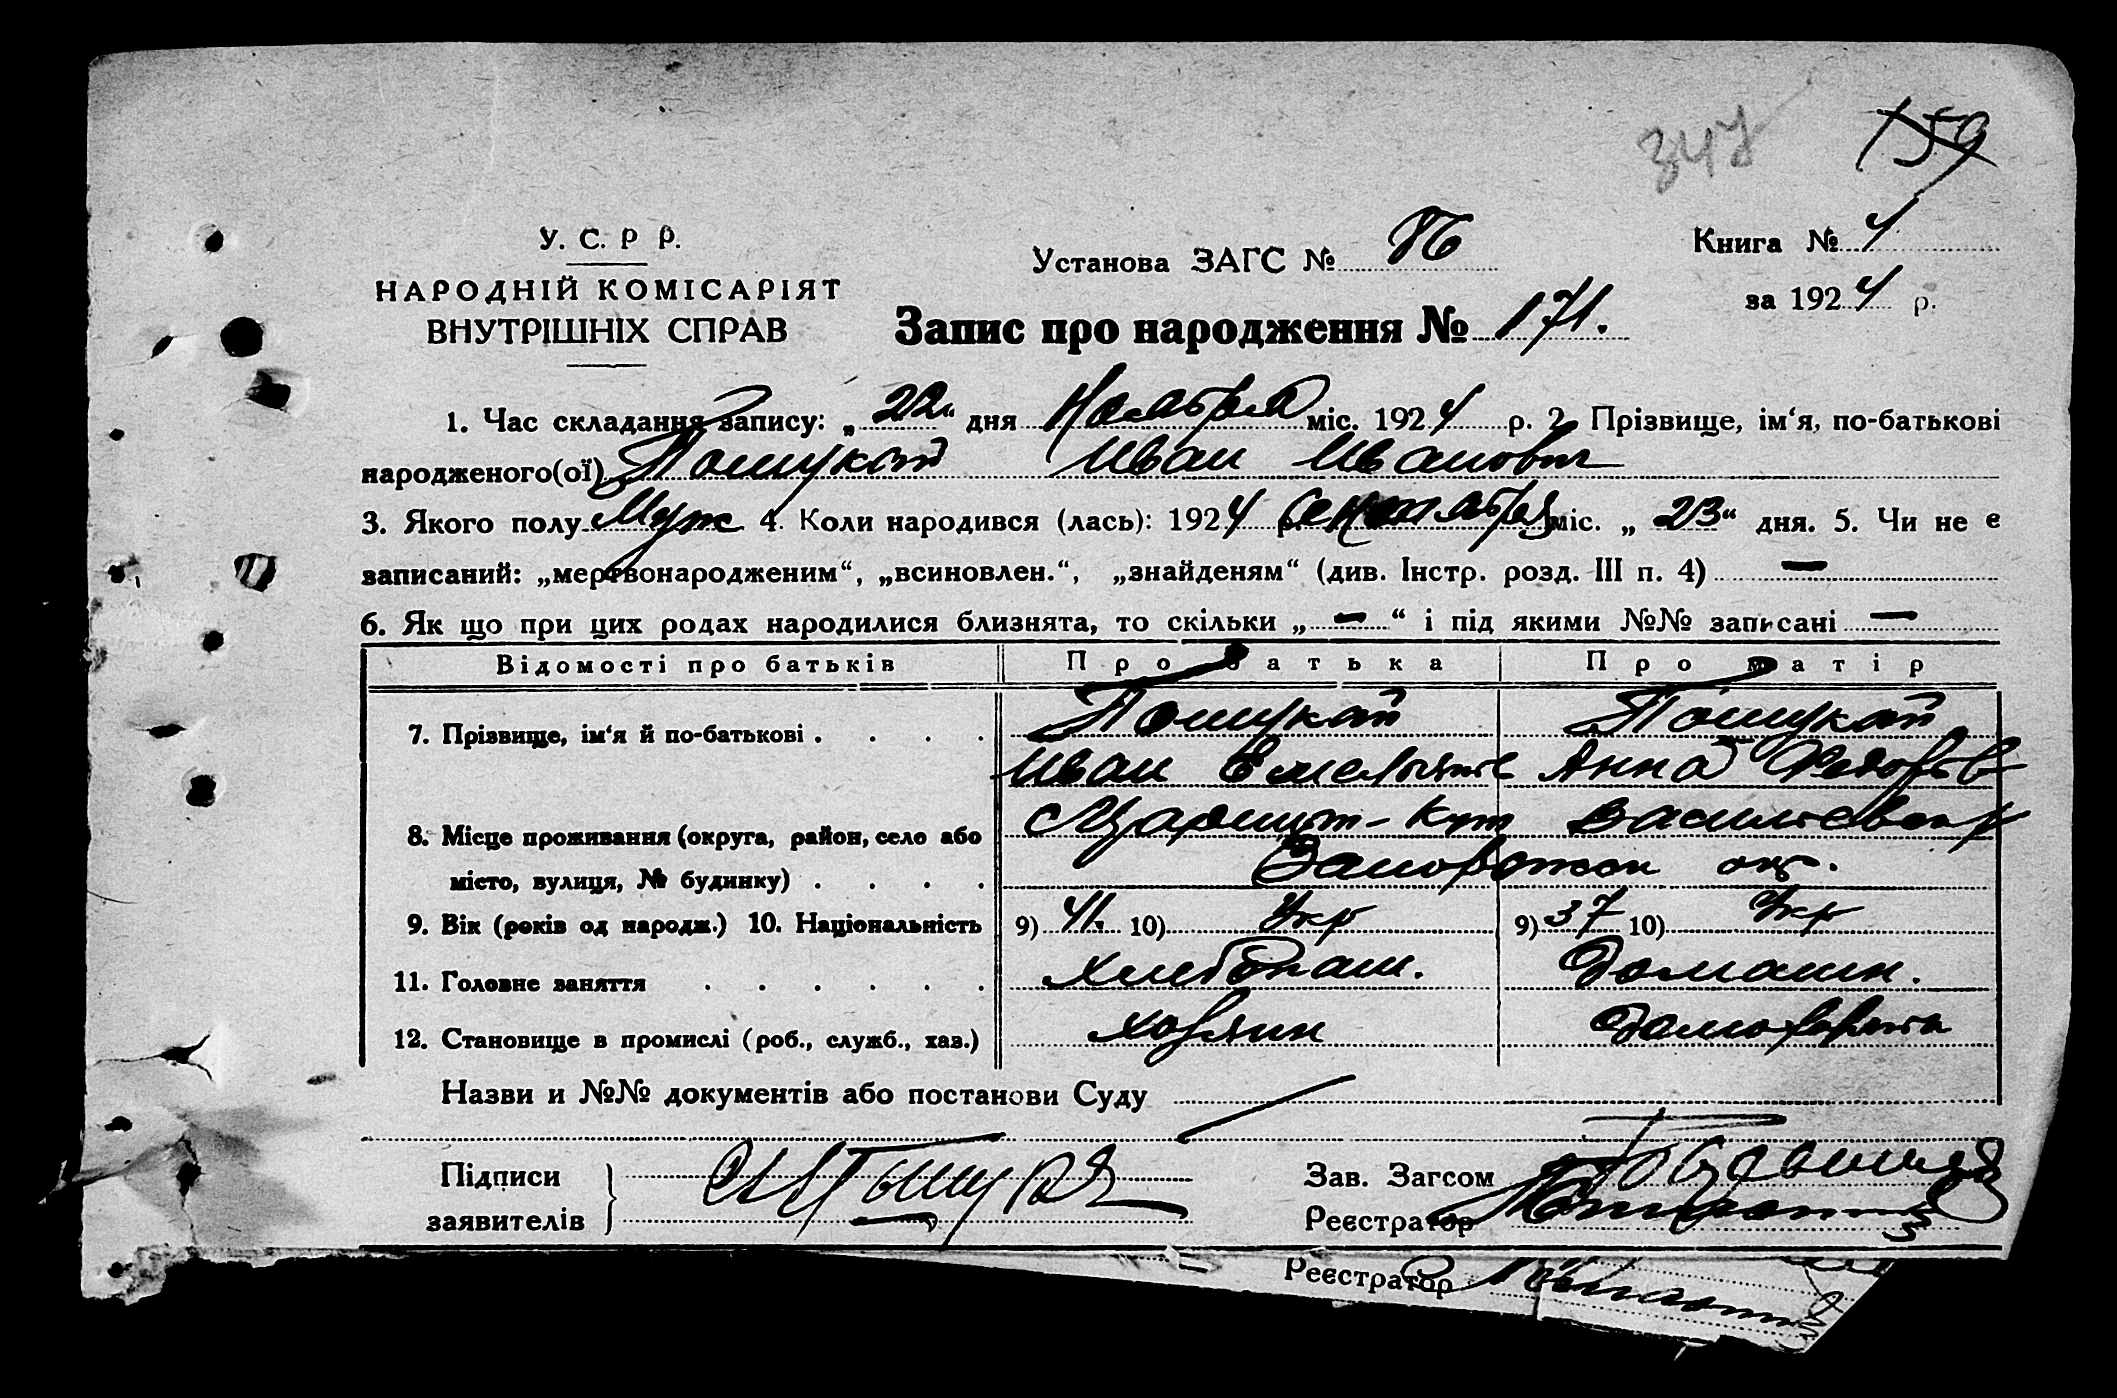 347 159
У. С. Р Р.
Установа ЗАГС № 86 Книга № 4
НАРОДНІЙ КОМІСАРІЯТ
ВНУТРІШНІХ СПРАВ
за 1924 р.
Запис про народження № 171.
1. Час складання запису: „22“ дня Ноября міс. 1924 р. 2. Прізвище, ім‘я, по-батькові
народженого(ої) Пошукай Иван Иванович
3. Якого полу Муж 4. Коли народився (лась): 1924 р. Сентября міс. „23“ дня. 5. Чи не є
записаний: „мертвонародженим“, „всиновлен.“, „знайденям“ (див. Інстр. розд. III п. 4) —
6. Як що при цих родах народилися близнята, то скільки „ — “ і під якими №№ записані —
Відомості про батьків Про батька Про матір
7. Прізвище, ім‘я й по-батькові . . . . Пошукай Пошукай
Иван Емельян Анна Федоров
8. Місце проживання (округа, район, село або
місто, вулиця, № будинку) . . . . Запорожск ок.
9. Вік (років од народж.) 10. Національність 9) 41. 10) Укр 9) 37 10) Укр
11. Головне заняття . . . . . . хлебопаш. Домашн.
12. Становище в промислі (роб., служб., хаз.) хозяин
Назви и №№ документів або постанови Суду
Підписи
заявителів
Зав. Загсом
Реєстратор
Реєстратор